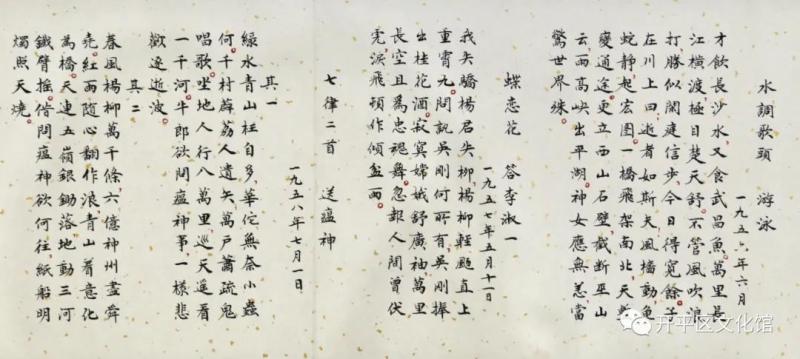 水調歌頭 游泳
一九五六年六月
才飲長沙水又食武昌魚萬里長
江橫渡極目楚天舒不管風吹浪
打勝似閑庭信步今日得寬餘子
在川上曰逝者如斯夫風檣動龜
蛇靜起宏图一橋飛架南北天塹
變通途更立西山石壁截斷巫山
云雨高峽出平湖神女應無恙當
驚世界殊
蝶恋花 答李淑一
一九五七年五月十一日
我失驕楊君失柳楊柳輕颺直上
重霄九問訊吳剛何所有吳剛捧
出桂花酒寂寞嫦娥舒廣袖萬里
長空且爲忠魂舞忽報人間曾伏
虎淚飛頓作傾盆雨
七律二首 送瘟神
一九五八年七月一日
其一
綠水青山枉自多華佗無奈小蟲
何千村薜荔人遺矢萬戶蕭疏鬼
唱歌坐地人行八萬里巡天遥看
一千河牛郎欲問瘟神事一樣悲
歡逐逝波
其二
春風楊柳萬千條六億神州盡舜
堯紅雨隨心翻作浪青山着意化
爲橋天連五嶺銀鋤落地動三河
鐵臂摇借問瘟神欲何往紙船明
燭照天燒
开平区文化馆